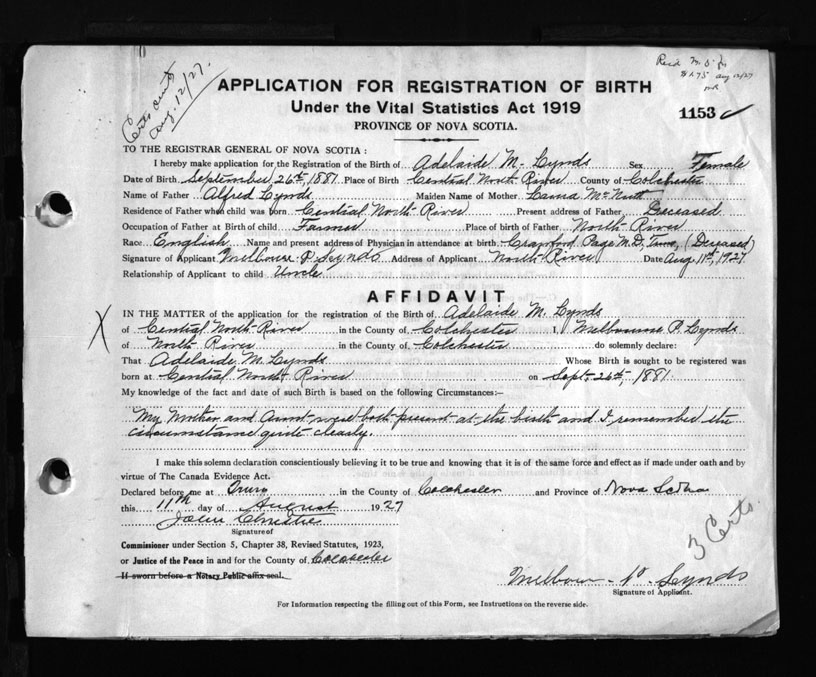 Certs out
Aug. 12/27.
Recd. M.O. for
$1.75 aug 12/27
APPLICATION FOR REGISTRATION OF BIRTH
Under the Vital Statistics Act 1919
1153
PROVINCE OF NOVA SCOTIA.
TO THE REGISTRAR GENERAL OF NOVA SCOTIA :
I hereby make application for the Registration of the Birth of Adelaide M. Lynds Sex Female
Date of Birth September 26th, 1881 Place of Birth Central North River County of Colchester
Name of Father Alfred Lynds Maiden Name of Mother Laura McNutt
Residence of Father when child was born Central North River Present address of Father Deceased
Occupation of Father at Birth of child Farmer Place of birth of Father North River
Race English Name and present address of Physician in attendance at birth Crawford Page M.D. (Deceased)
Signature of Applicant Melbourne P. Lynds Address of Applicant North River Date Aug 11th, 1927
Relationship of Applicant to child Uncle
AFFIDAVIT
X
IN THE MATTER of the application for the registration of the Birth of Adelaide M. Lynds
of Central North River in the County of Colchester I, Melbourne P. Lynds
of North River in the County of Colchester do solemnly declare:
That Adelaide M. Lynds Whose Birth is sought to be registered was
born at Central North River on Sept. 26th, 1881
My knowledge of the fact and date of such Birth is based on the following Circumstances:—
My Mother and Aunt were both present at the birth and I remember the
circumstance quite clearly.
I make this solemn declaration conscientiously believing it to be true and knowing that it is of the same force and effect as if made under oath and by
virtue of The Canada Evidence Act.
Declared before me at Truro in the County of Colchester and Province of Nova Scotia
this 11th day of August 1927
John Christie
Signature of
Commissioner under Section 5, Chapter 38, Revised Statutes, 1923,
or Justice of the Peace in and for the County of Colchester
If sworn before a Notary Public affix seal.
3 Certs.
Melbourne P. Lynds
Signature of Applicant.
For Information respecting the filling out of this Form, see Instructions on the reverse side.